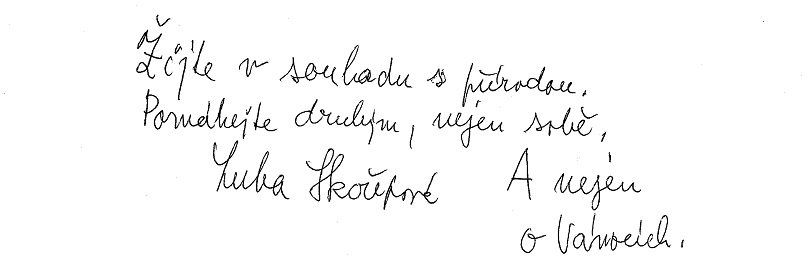 Žijte v souladu s přírodou.
Pomáhejte druhým, nejen sobě.
Luba Skořepová A nejen
o Vánocích.